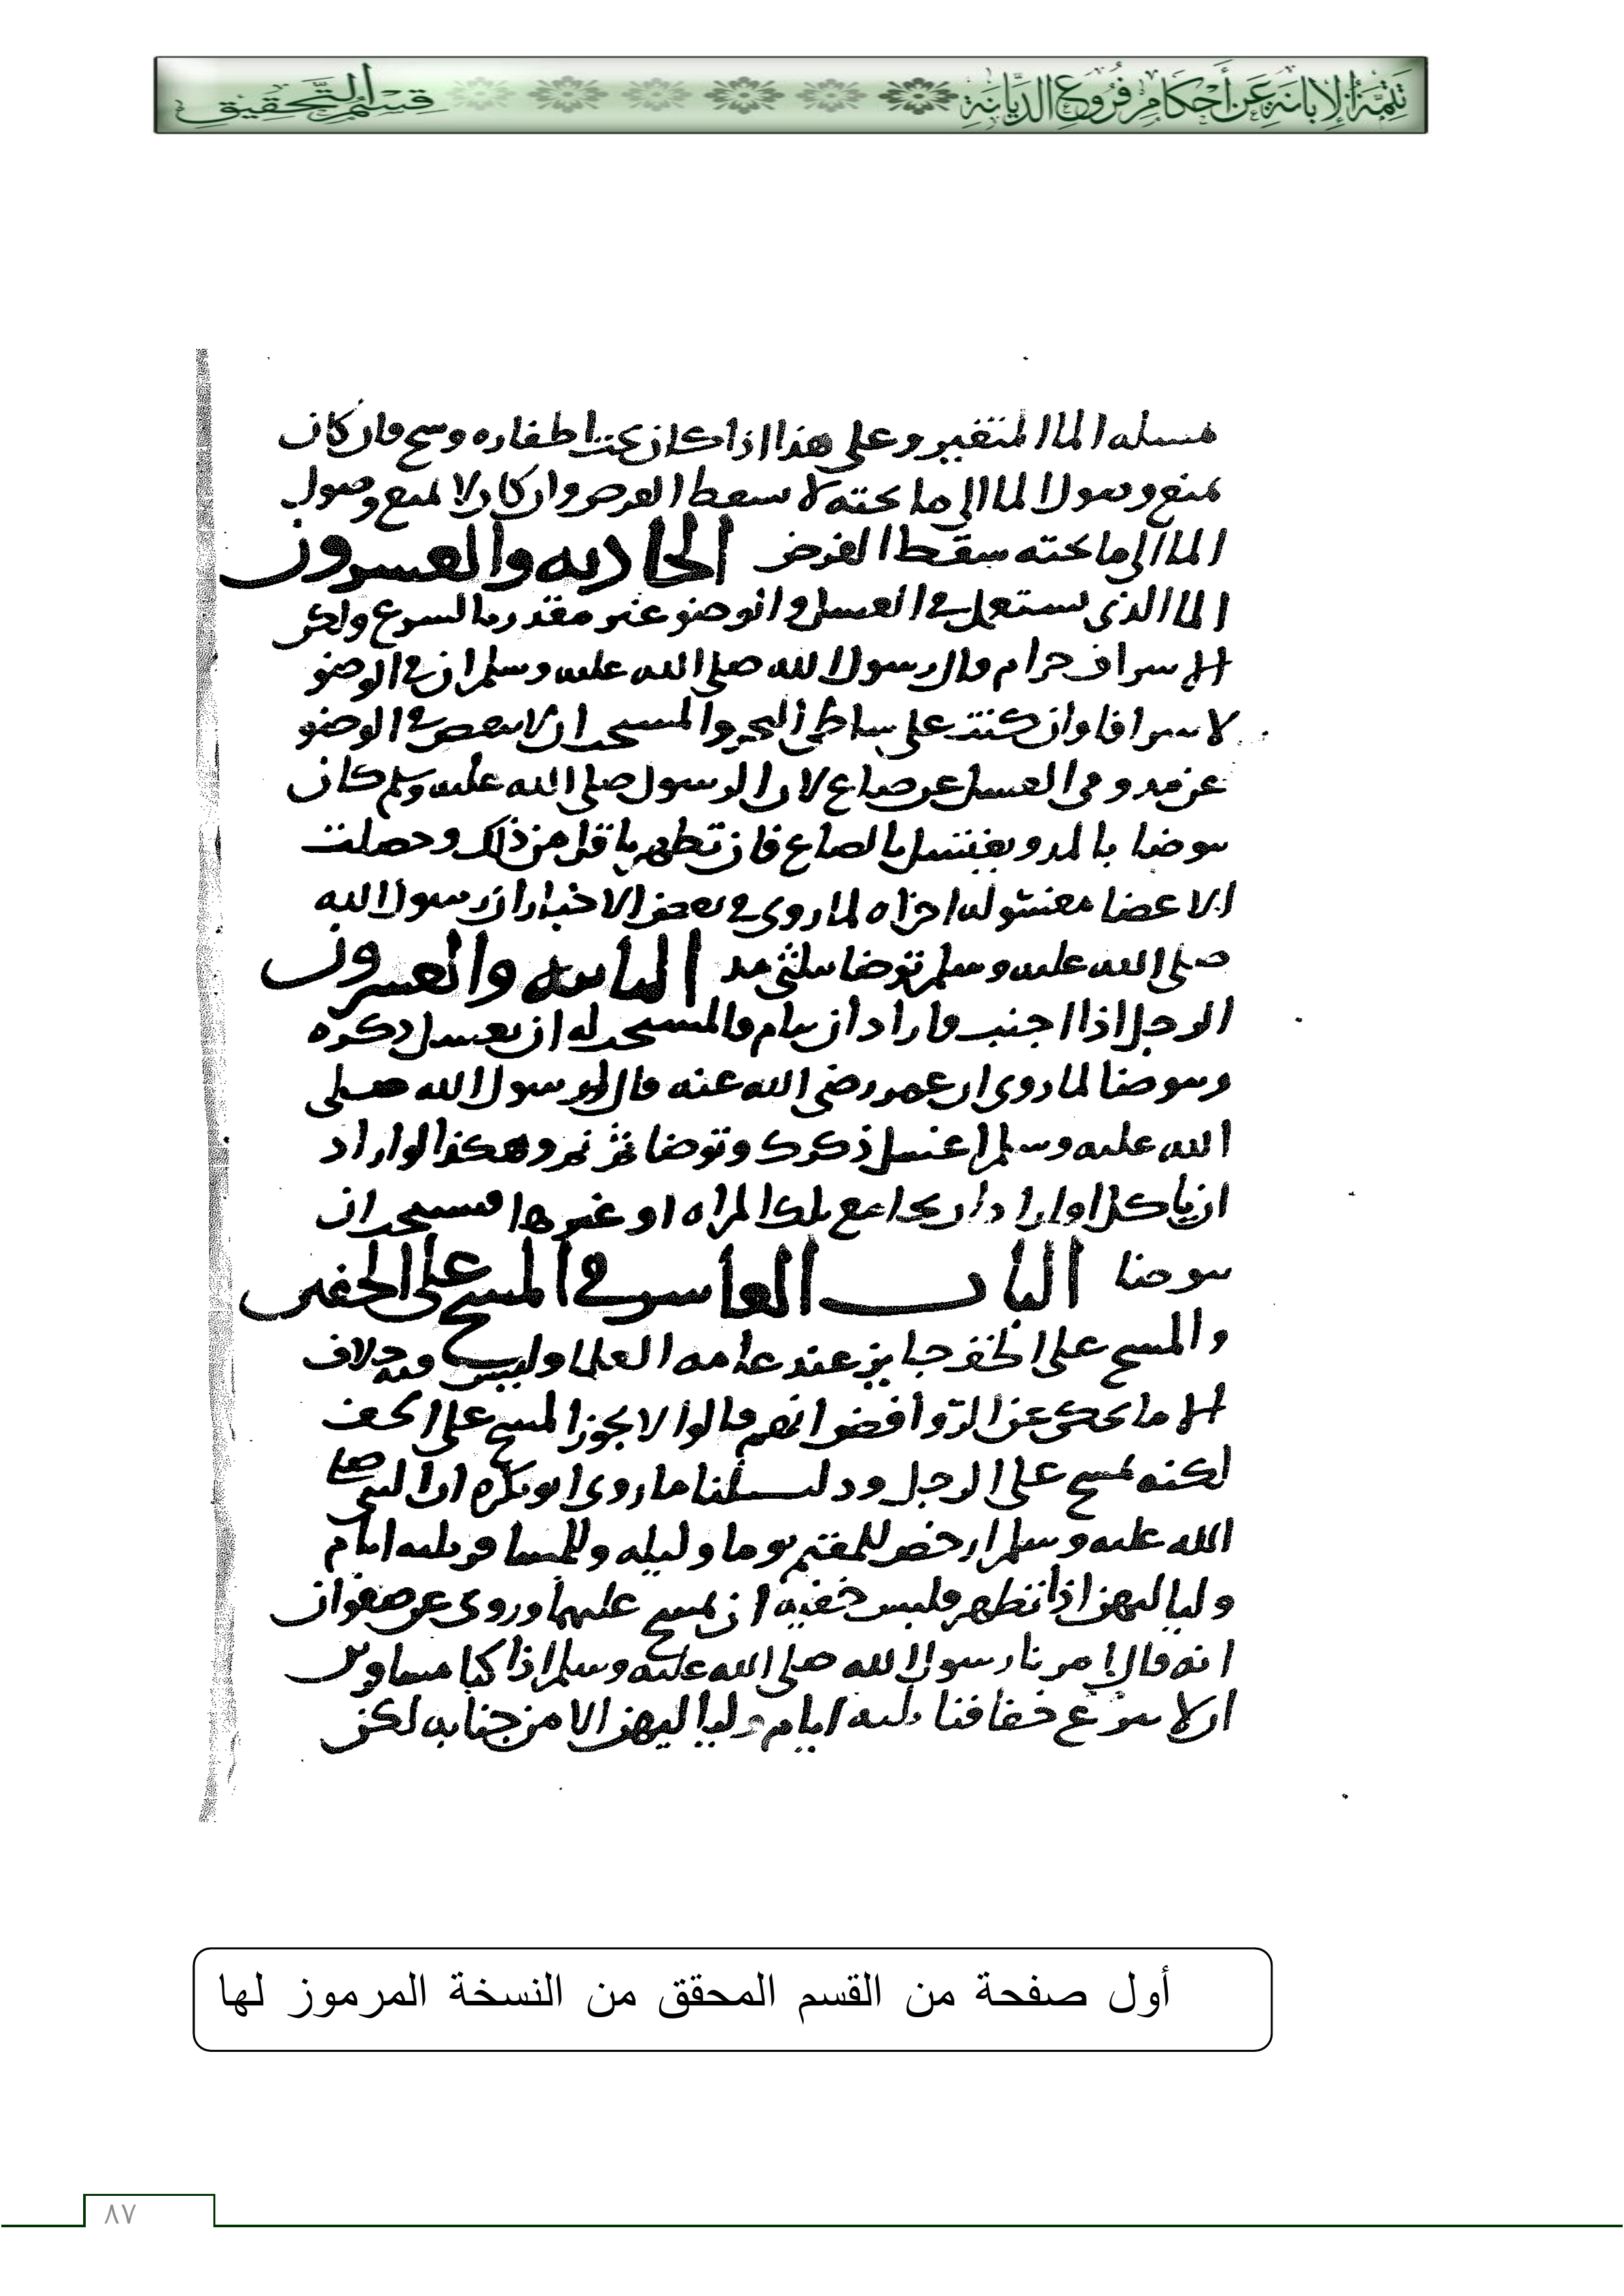 تَتِمَّةُ الإِبَانَةِ عَنْ أَحْكَامِ فُرُوعِ الدِّيَانَةِ
قِسْمُ التَّحْقِيقِ
مسله الماء المتغير وعلى هذا اذا كان تحت اطفاره وسخ فان كان
يمنع وصول الما الى ما تحته لا يسقط الفرض وان كان لا يمنع وصول
الما الى ما تحته سقط الفرض الحاديه والعسرون
الما الذي يستعمل في الغسل والوضو غير مقدر بالشرع ولكن
الاسراف حرام قال رسول الله صلى الله عليه وسلم ان في الوضو
لاسرافا وان كنت على ساطى البحر والمستحب ان لا ينقص في الوضو
عن مد وفي الغسل عن صاع لان الرسول صلى الله عليه وسلم كان
يتوضا بالمد ويغتسل بالصاع فان تطهر باقل من ذلك وحصلت
الاعضا مغسوله اجزاه لما روى في بعض الاخبار ان رسول الله
صلى الله عليه وسلم توضا بثلثي مد الثانيه والعسرون
الرجل اذا اجنب واراد ان ينام فالمستحب له ان يغسل ذكره
ويتوضا لما روى ان عمر رضي الله عنه قال له رسول الله صلى
الله عليه وسلم اغسل ذكرك وتوضا ثم نم وهكذا لو اراد
ان ياكل او اراد ان يجامع تلك المراه او غيرها فيستحب ان
يتوضا الباب العاسر في المسح على الخفين
والمسح على الخف جايز عند عامه العلما وليس فيه خلاف
الا ما يحكى عن الروافض انهم قالوا لا يجوز المسح على الخف
لكنه يمسح على الرجل ودليلنا ما روى ابو بكره ان النبي صلى
الله عليه وسلم ارخص للمقيم يوما وليله وللمسافر ثلثه ايام
ولياليهن اذا تطهر فلبس خفيه ان يمسح عليهما وروى عن صفوان
انه قال امرنا رسول الله صلى الله عليه وسلم اذا كنا مسافرين
ان لا ننزع خفافنا ثلثه ايام ولياليهن الا من جنابه لكن
أول صفحة من القسم المحقق من النسخة المرموز لها
٨٧